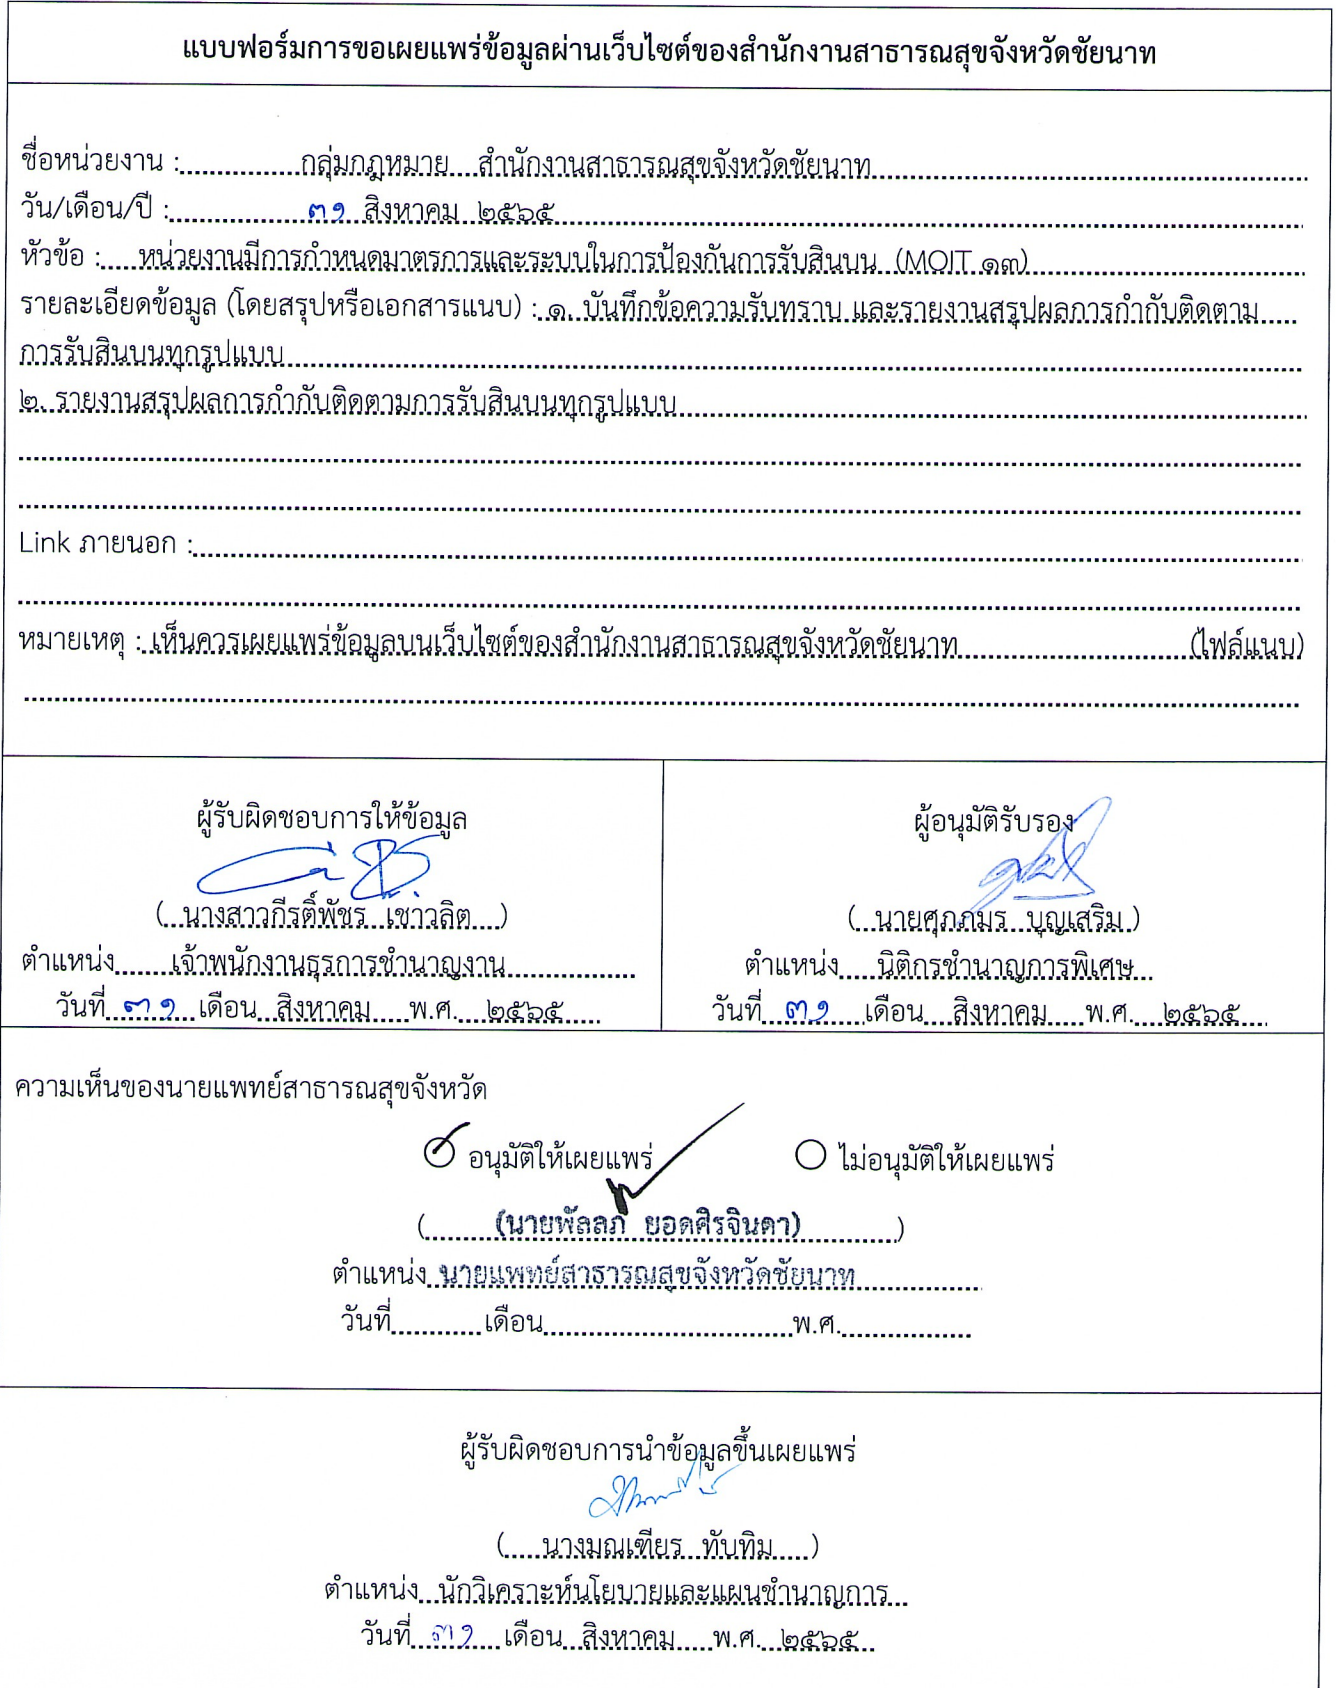 แบบฟอร์มการขอเผยแพร่ข้อมูลผ่านเว็บไซต์ของสำนักงานสาธารณสุขจังหวัดชัยนาท
ชื่อหน่วยงาน : กลุ่มกฎหมาย สำนักงานสาธารณสุขจังหวัดชัยนาท
วัน/เดือน/ปี : ๓๑ สิงหาคม ๒๕๖๕
หัวข้อ : หน่วยงานมีการกำหนดมาตรการและระบบในการป้องกันการรับสินบน (MOIT ๑๓)
รายละเอียดข้อมูล (โดยสรุปหรือเอกสารแนบ) : ๑. บันทึกข้อความรับทราบ และรายงานสรุปผลการกำกับติดตาม
การรับสินบนทุกรูปแบบ
๒. รายงานสรุปผลการกำกับติดตามการรับสินบนทุกรูปแบบ
Link ภายนอก :
หมายเหตุ : เห็นควรเผยแพร่ข้อมูลบนเว็บไซต์ของสำนักงานสาธารณสุขจังหวัดชัยนาท (ไฟล์แนบ)
ผู้รับผิดชอบการให้ข้อมูล
( นางสาวกีรติ์พัชร เชาวลิต )
ตำแหน่ง เจ้าพนักงานธุรการชำนาญงาน
วันที่ ๓๑ เดือน สิงหาคม พ.ศ. ๒๕๖๕
ผู้อนุมัติรับรอง
( นายศุภภมร บุญเสริม )
ตำแหน่ง นิติกรชำนาญการพิเศษ
วันที่ ๓๑ เดือน สิงหาคม พ.ศ. ๒๕๖๕
ความเห็นของนายแพทย์สาธารณสุขจังหวัด
อนุมัติให้เผยแพร่ ไม่อนุมัติให้เผยแพร่
( (นายพัลลภ ยอดศิรจินดา) )
ตำแหน่ง นายแพทย์สาธารณสุขจังหวัดชัยนาท
วันที่ เดือน พ.ศ.
ผู้รับผิดชอบการนำข้อมูลขึ้นเผยแพร่
( นางมณเฑียร ทับทิม )
ตำแหน่ง นักวิเคราะห์นโยบายและแผนชำนาญการ
วันที่ ๓๑ เดือน สิงหาคม พ.ศ. ๒๕๖๕